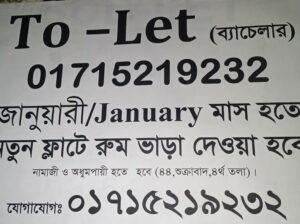 To –Let (ব্যাচেলার)
01715219232
জানুয়ারী/January মাস হতে
নতুন ফ্লাটে রুম ভাড়া দেওয়া হবে
নামাজী ও অধুমপায়ী হতে হবে (৪৪,শুক্রাবাদ,৪র্থ তলা)।
যোগাযোগঃ ০১৭১৫২১৯২৩২